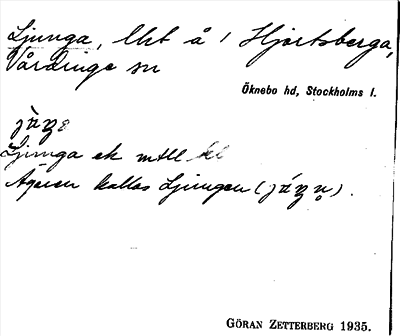 Ljunga, lht å / Hjortsberga,
Vårdinge sn
Öknebo hd, Stockholms l.
Ljunga ek mtl
kallas Ljungen
GÖRAN ZETTERBERG 1935.